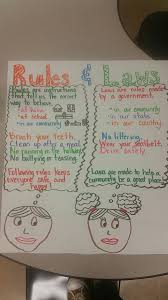 Rules & Laws
Rules are instructions
that tell us the correct
way to behave.
at home
at school
in our community
Brush your teeth.
Clean up after a meal.
No running in the hallway.
No bullying or teasing.
Following rules keeps
everyone safe and
happy!
Laws are rules made
by a government.
- in our community
- in our state
- in our country
No littering.
Wear your seatbelt.
Drive safely.
Laws are made to help a
community be a good place.